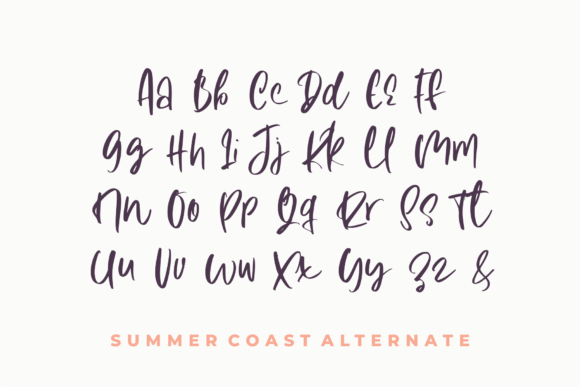 Aa Bb Cc Dd Ee Ff
Gg Hh Ii Jj Kk Ll Mm
Nn Oo Pp Qq Rr Ss Tt
Uu Vv Ww Xx Yy Zz &
SUMMER COAST ALTERNATE